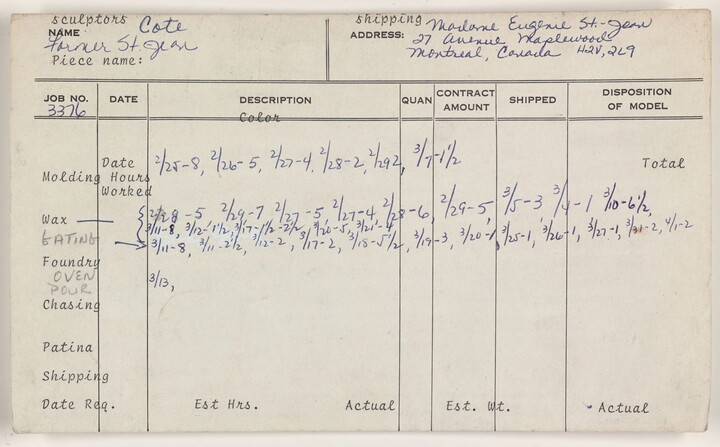 sculptors NAME Cote
Former St. Jean
Piece name:
shipping ADDRESS: Madame Eugenie St.-Jean
27 Avenue Maplewood
Montreal, Canada H2V, 2L9
JOB NO. DATE DESCRIPTION QUAN CONTRACT AMOUNT SHIPPED DISPOSITION OF MODEL
3376
Color
Molding Date Hours Worked 2/25-8, 2/26-5, 2/27-4, 2/28-2, 2/29 2, 3/7-1 1/2 Total
Wax 2/28-5 2/29-7 2/27-5, 2/27-4, 2/28-6, 2/29-5, 3/5-3 3/4-1 3/10-6 1/2,
3/11-8, 3/12-1 1/2, 3/17-1 1/2-2 1/2, 3/20-5, 3/21-4
GATING 3/11-8, 3/11-2 1/2, 3/12-2, 3/17-2, 3/18-5 1/2, 3/19-3, 3/20-1, 3/25-1, 3/26-1, 3/27-1, 3/31-2, 4/1-2
Foundry
OVEN 3/13,
POUR
Chasing
Patina
Shipping
Date Req. Est Hrs. Actual Est. Wt. Actual